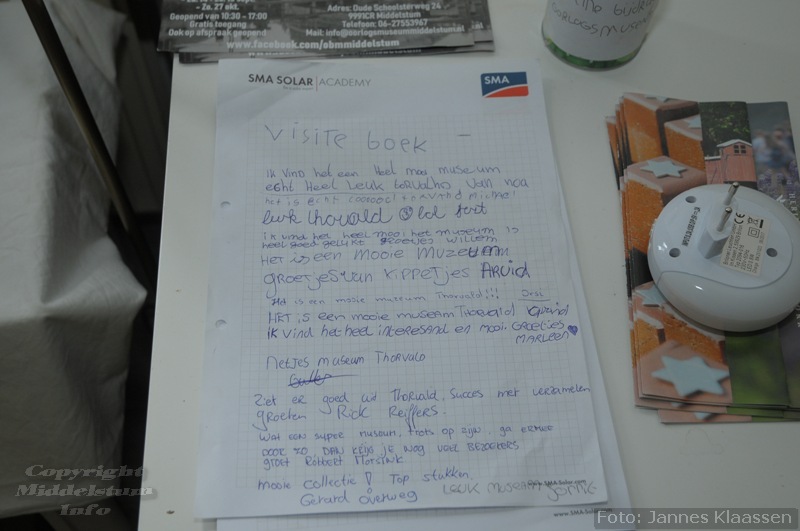 - Za. 27 okt.
Geopend van 10:30 - 17:00
Gratis toegang
Ook op afspraak geopend
Adres: Oude Schoolsterweg 24
9991CR Middelstum
Telefoon: 06-27553967
Mail: info@oorlogsmuseummiddelstum.nl
www.facebook.com/obmmiddelstum
SMA SOLAR | ACADEMY
SMA
visite boek -
ik vind het een heel mooi museum
echt Heel Leuk torvalho van noa
het is echt
leuk thorvald
ik vind het heel mooi het museum is
heel goed gelukt groetjes willem
Het is een mooie muzeum
groetjes van kippetjes Arvid
Het is een mooie museum Thorvald!!!
HET is een mooie museam Thorvald
ik vind het heel interesand en mooi. Groetjes
Marleen
Netjes museum Thorvald
Ziet er goed uit Thorvald, succes met verzamelen
groeten Rick Reiffers.
Wat een super museum, trots op zijn, ga ermee
door zo dan krijg je nog veel bezoekers
groet Robbert
mooie collectie! Top stukken.
Gerard overweg
Leuk museum Jorrit
www.SMA-Solar.com
www.SMA-Solar.com
CE
Copyright
Middelstum
Info
Foto: Jannes Klaassen